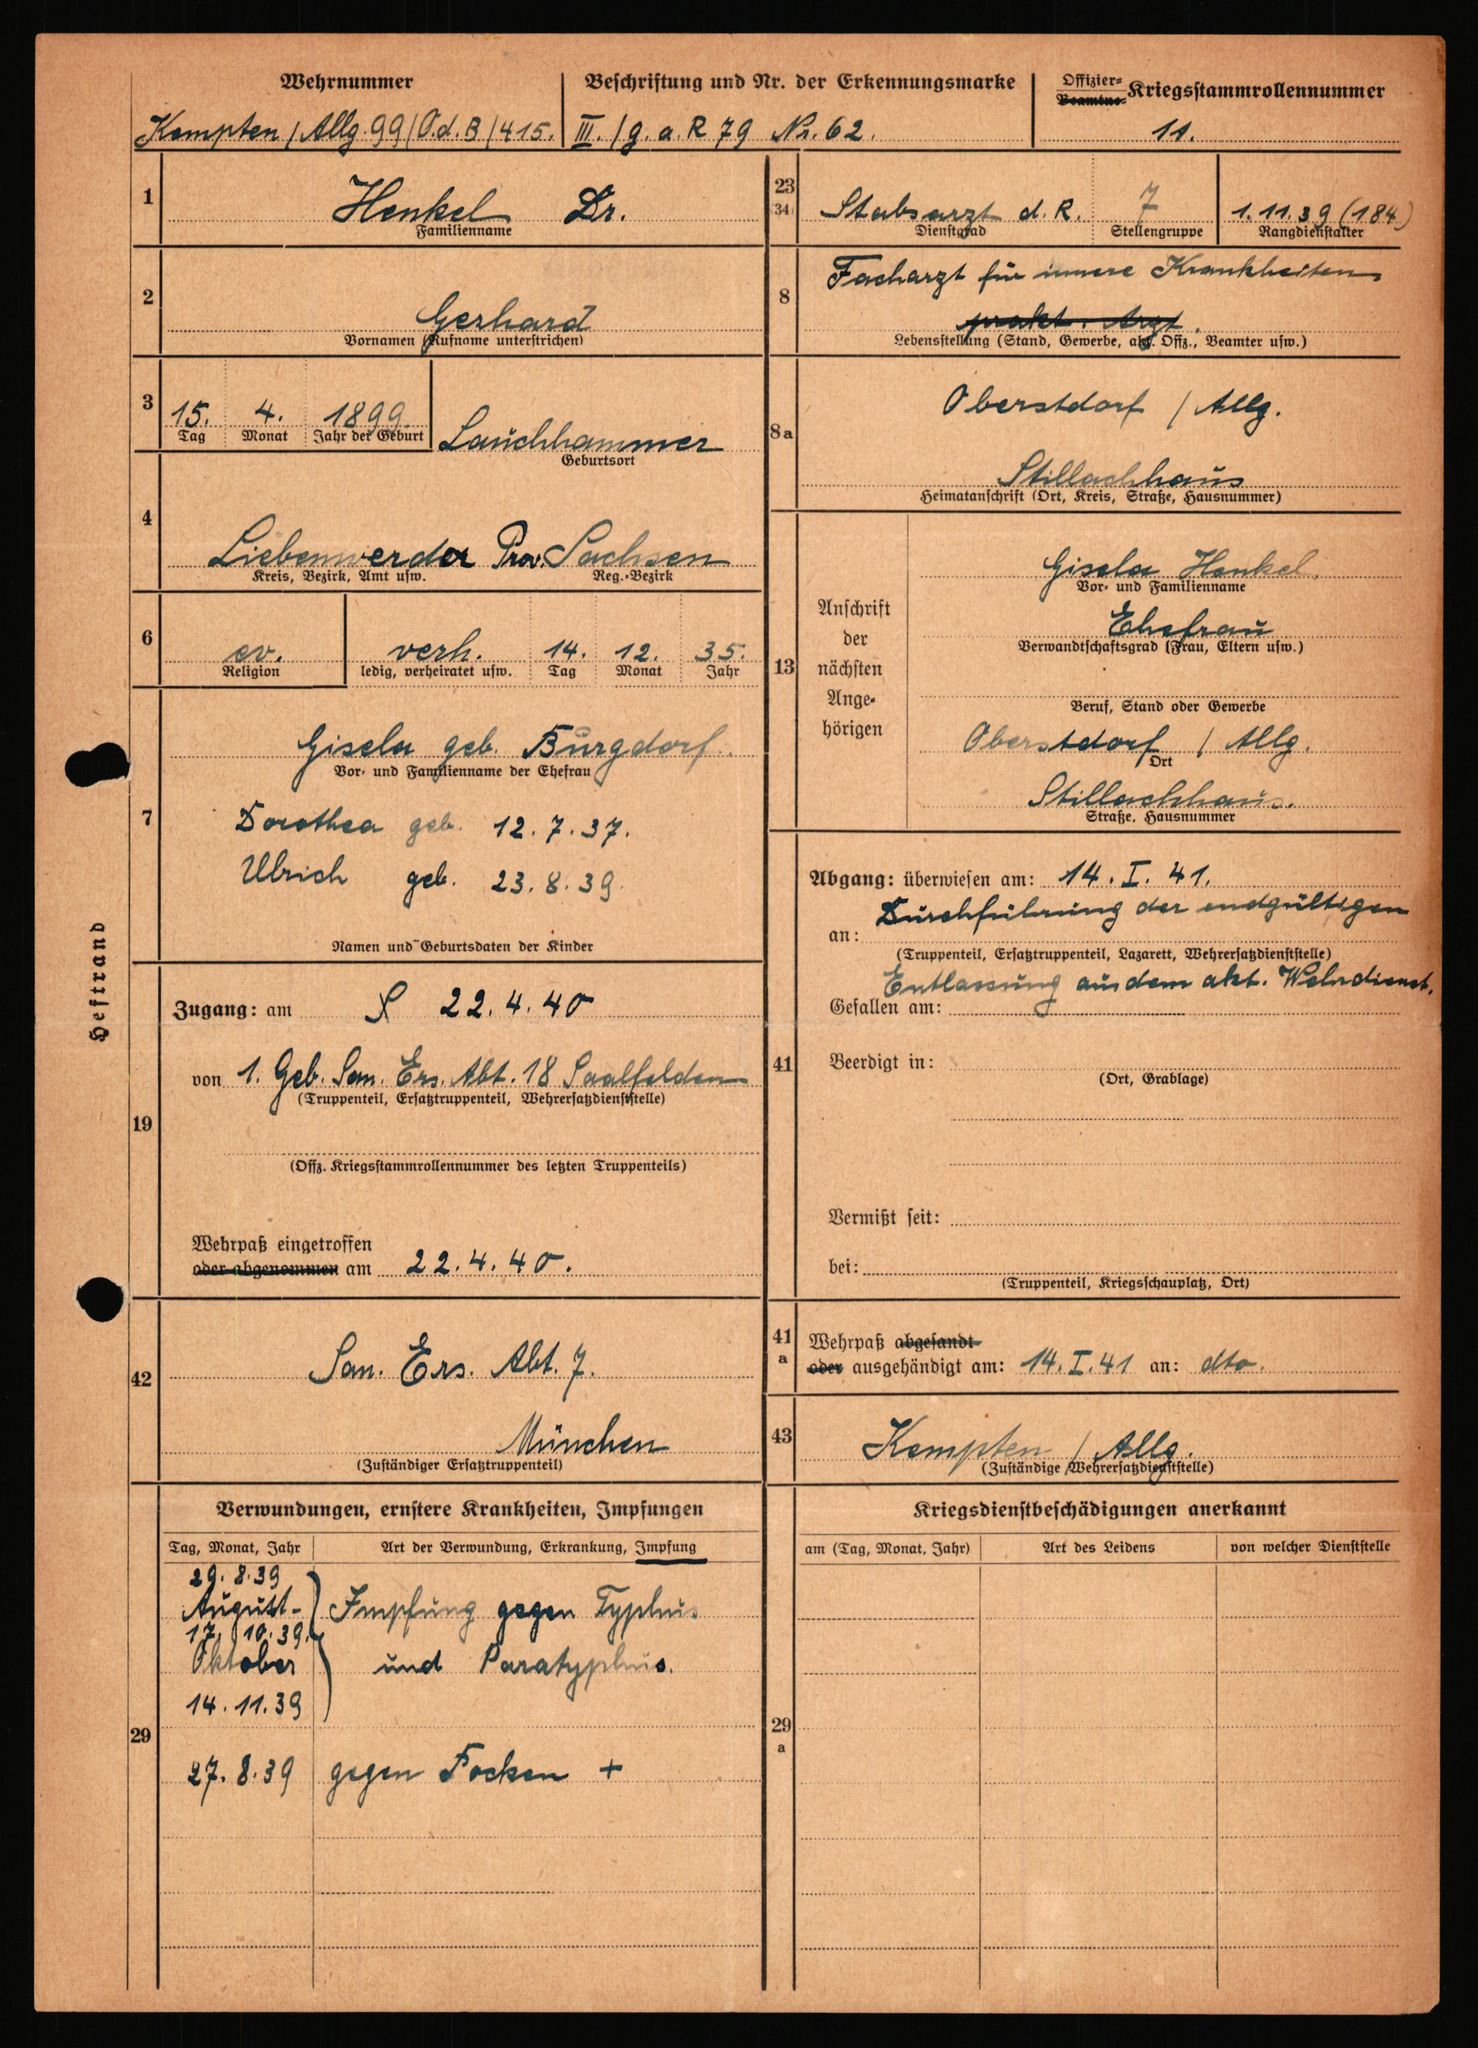 Wehrnummer
Kempten / Allg. 99 / O.d.B / 415.
Beschriftung und Nr. der Erkennungsmarke
III. / g. a. R 79 Nr. 62.
Offizier-
Beamten-
Kriegsstammrollennummer
11.
1
Henkel Dr.
Familienname
2
Gerhard
Vornamen (Rufname unterstrichen)
3
15. 4. 1899.
Tag Monat Jahr der Geburt
Lauchhammer
Geburtsort
4
Liebenwerder Prov. Sachsen
Kreis, Bezirk, Amt usw. Reg.-Bezirk
6
ev. verh. 14. 12. 35.
Religion ledig, verheiratet usw. Tag Monat Jahr
Gisela geb. Burgdorf.
Vor- und Familienname der Ehefrau
7
Dorothea geb. 12. 7. 37.
Ulrich geb. 23. 8. 39.
Namen und Geburtsdaten der Kinder
Heftrand
Zugang: am 22. 4. 40
von 1. Geb. San. Ers. Abt. 18 Saalfelden
(Truppenteil, Ersatztruppenteil, Wehrersatzdienststelle)
19
(Offz. Kriegsstammrollennummer des letzten Truppenteils)
Wehrpaß eingetroffen
oder abgenommen am 22. 4. 40.
42
San. Ers. Abt. 7.
München
(Zuständiger Ersatztruppenteil)
Verwundungen, ernstere Krankheiten, Impfungen
Tag, Monat, Jahr Art der Verwundung, Erkrankung, Impfung
29. 8. 39
August - Impfung gegen Typhus
17. 10. 39.
Oktober und Paratyphus.
14. 11. 39
29
27. 8. 39 gegen Pocken +
23
(34)
Stabsarzt d. R. 7 1. 11. 39 (184)
Dienstgrad Stellengruppe Rangdienstalter
8
Facharzt für innere Krankheiten
prakt. Arzt.
Lebensstellung (Stand, Gewerbe, akt. Offz., Beamter usw.)
8a
Oberstdorf / Allg.
Stillachhaus
Heimatanschrift (Ort, Kreis, Straße, Hausnummer)
13
Anschrift
der
nächsten
Ange-
hörigen
Gisela Henkel.
Vor- und Familienname
Ehefrau
Verwandtschaftsgrad (Frau, Eltern usw.)
Beruf, Stand oder Gewerbe
Oberstdorf / Allg.
Ort
Stillachhaus.
Straße, Hausnummer
41
Abgang: überwiesen am: 14. I. 41.
Durchführung der endgültigen
an:
(Truppenteil, Ersatztruppenteil, Lazarett, Wehrersatzdienststelle)
Entlassung aus dem akt. Wehrdienst.
Gefallen am:
Beerdigt in:
(Ort, Grablage)
Vermißt seit:
bei:
(Truppenteil, Kriegsschauplatz, Ort)
41
a
Wehrpaß abgesandt
oder ausgehändigt am: 14. I. 41 an: dto.
43
Kempten / Allg.
(Zuständige Wehrersatzdienststelle)
Kriegsdienstbeschädigungen anerkannt
am (Tag, Monat, Jahr) Art des Leidens von welcher Dienststelle
29
a